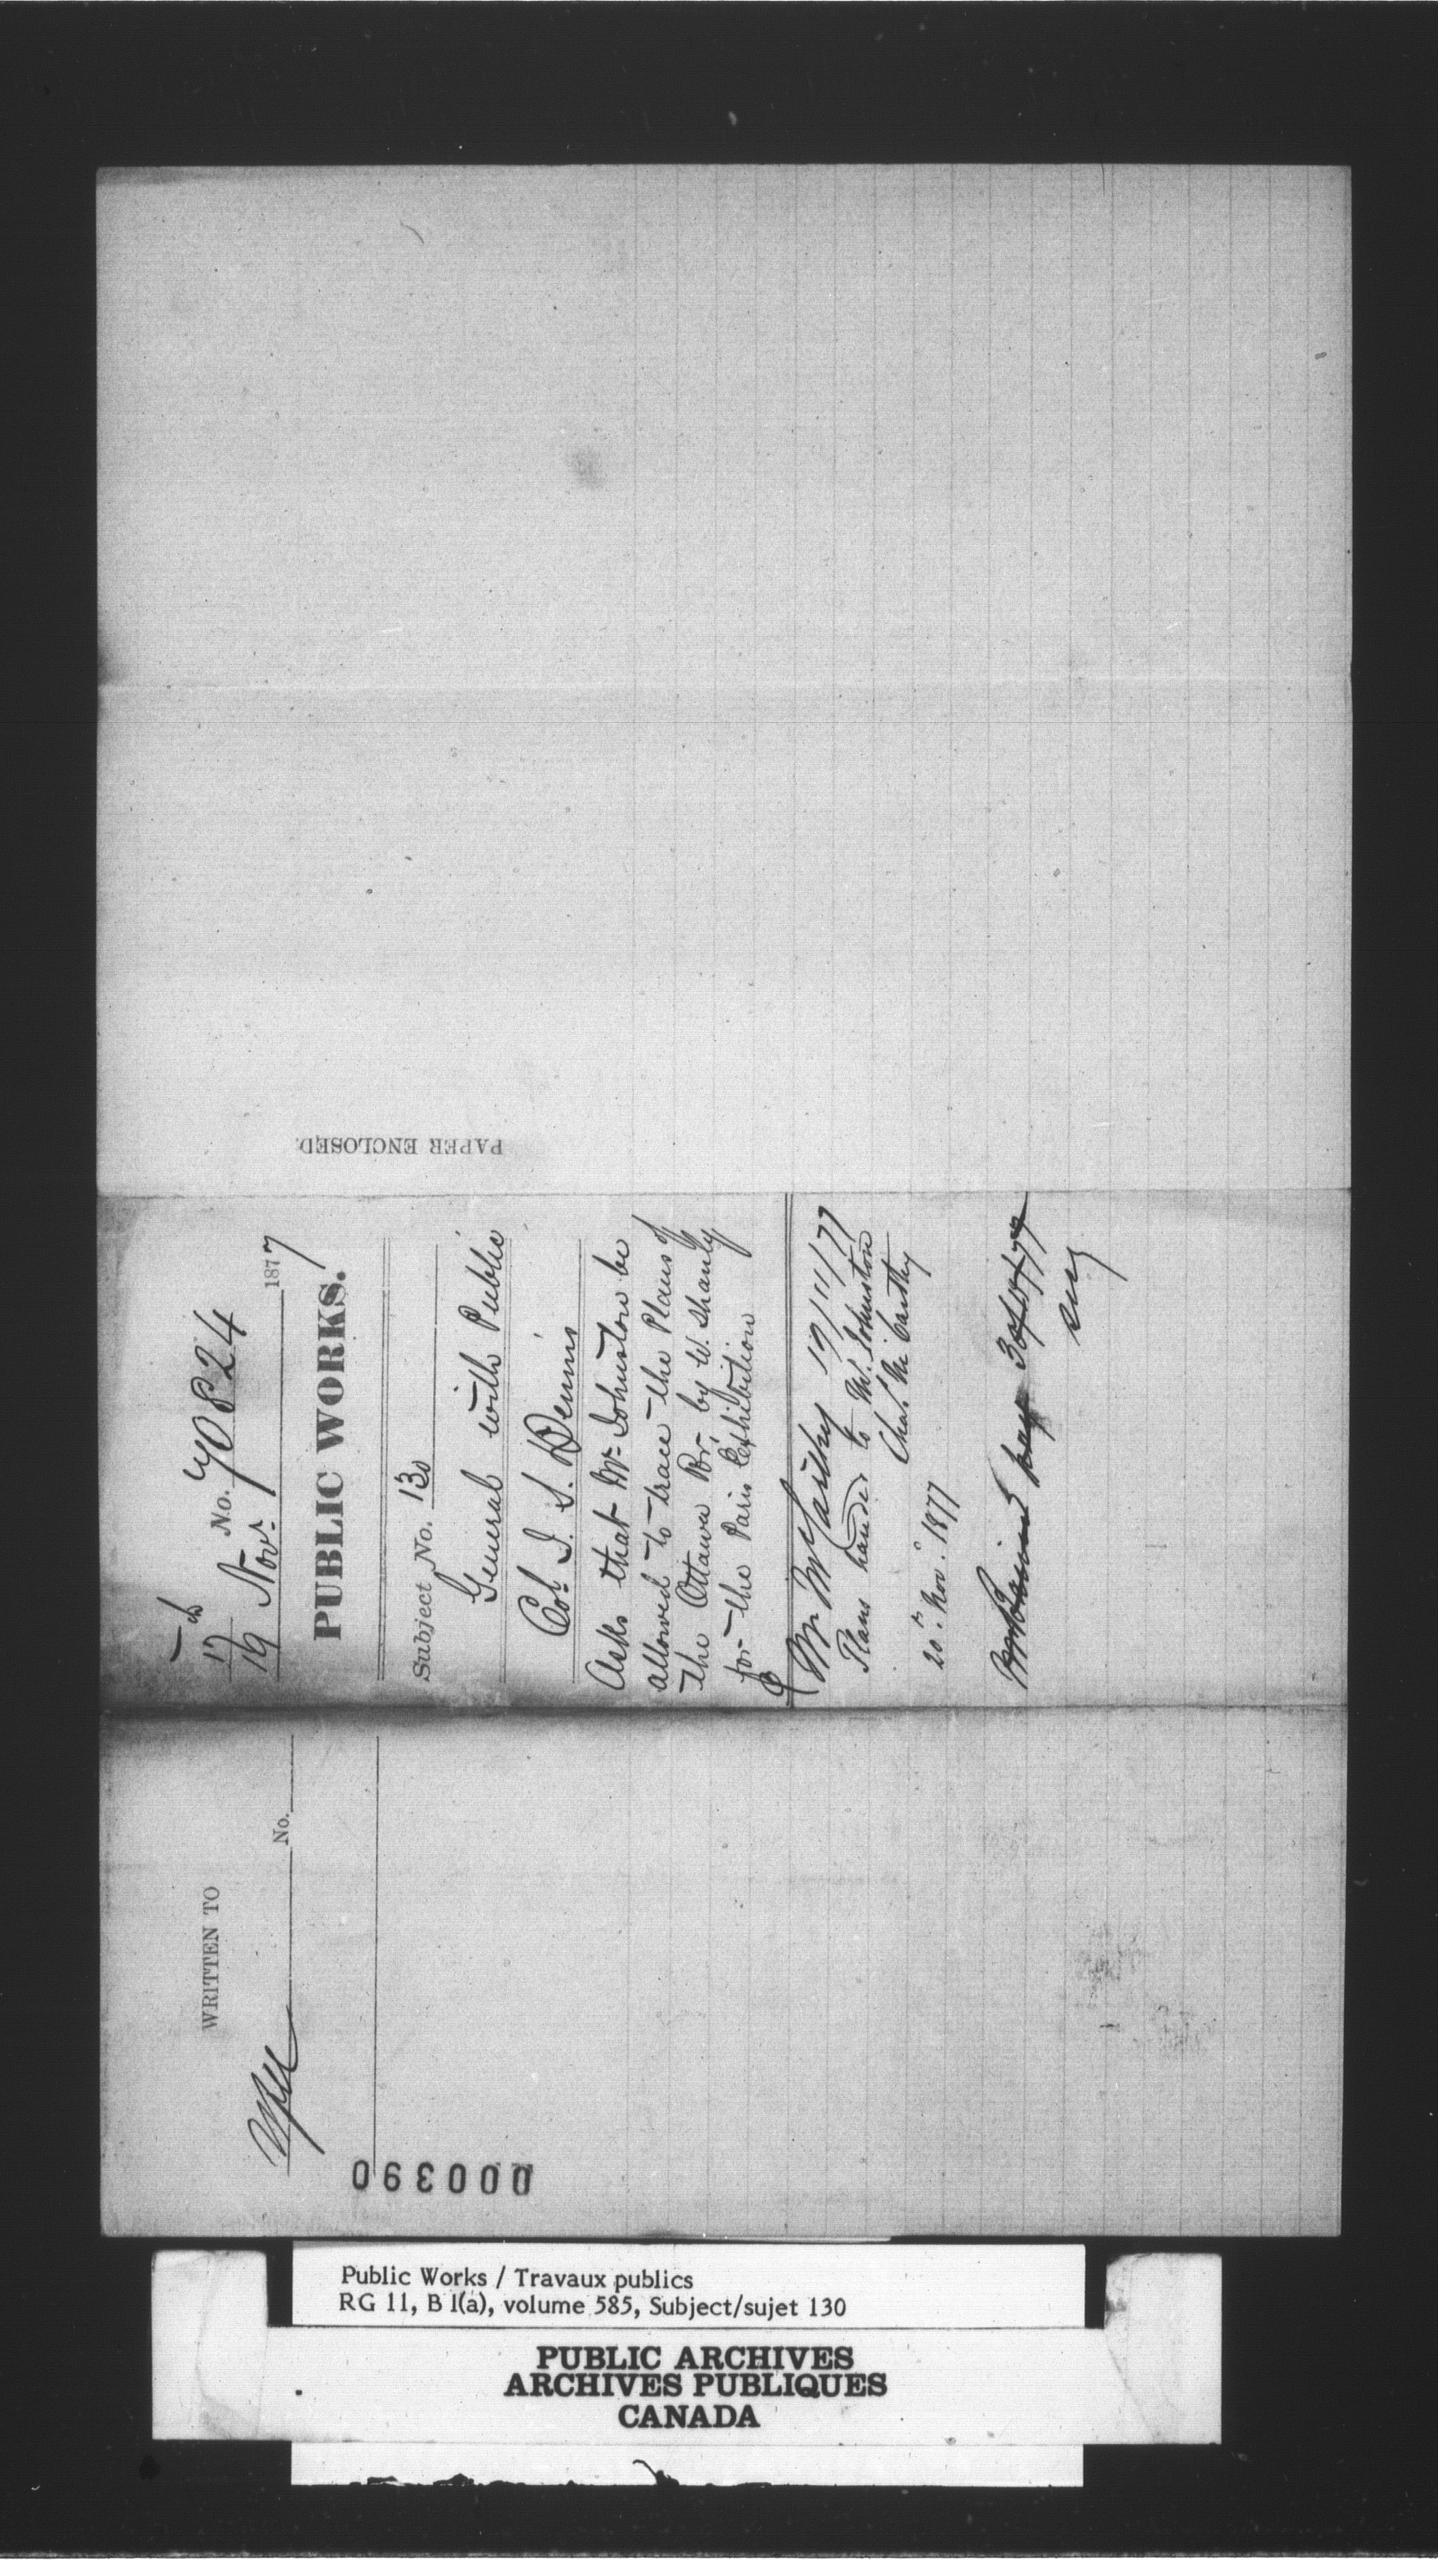 PAPER ENCLOSED.
No. 70824
17
19 Nov. 1877
PUBLIC WORKS.
Subject No. 130
General with Public
Col. J. S. Dennis
Asks that Mr. Johnston be
allowed to trace the Plans of
the Ottawa Br. by W. Shanly
for the Paris Exhibition
Mr McCarthy 19/11/77
Plans handed to W. Johnston
Chas. McCarthy
20th Nov. 1877
WRITTEN TO
No.
000390
Public Works / Travaux publics
RG 11, B 1(a), volume 585, Subject/sujet 130
PUBLIC ARCHIVES
ARCHIVES PUBLIQUES
CANADA